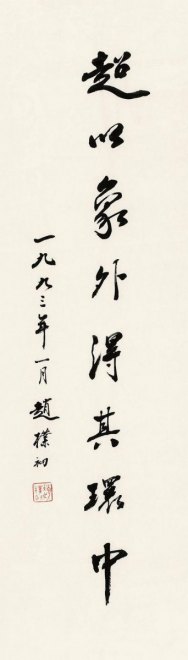 超以象外得其環中
一九九三年一月趙樸初